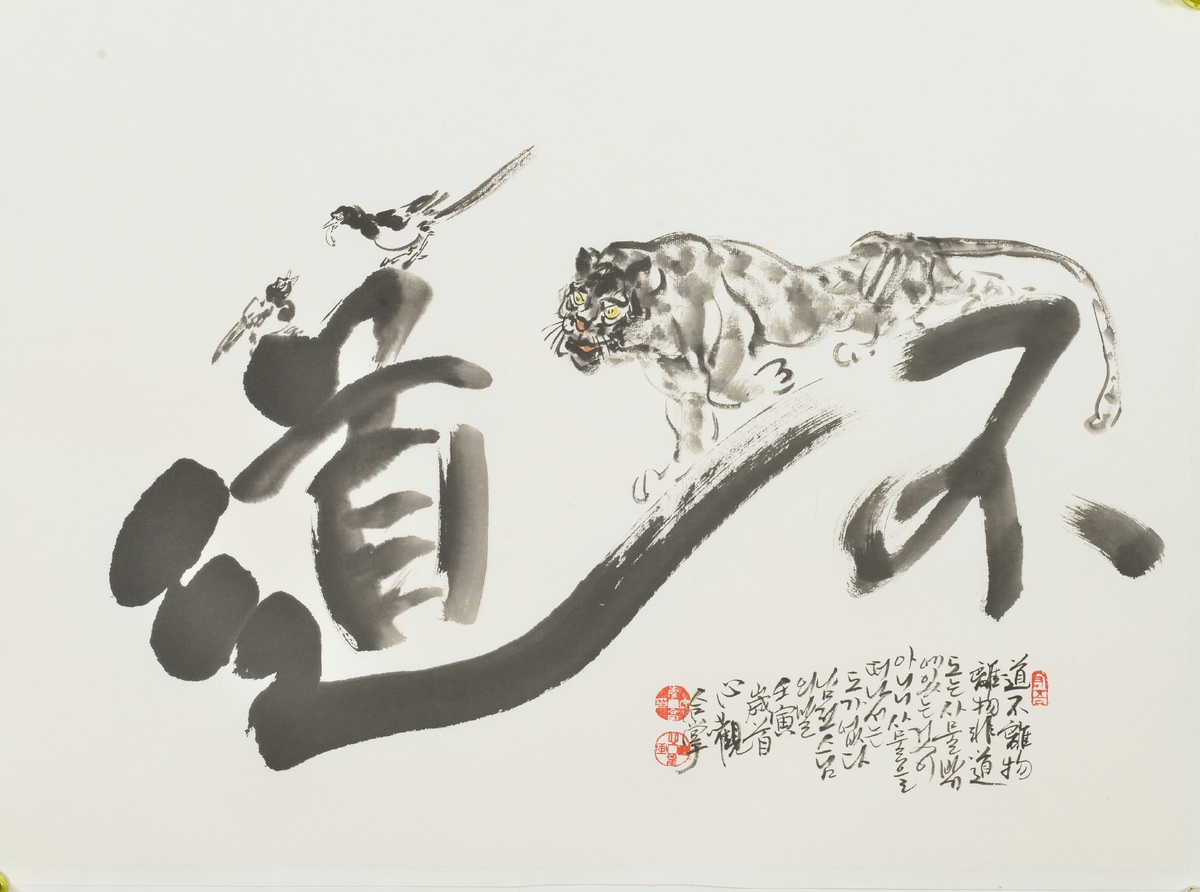 道不
道不離物
離物非道
도는 사물밖
에 있는 것이
아니니 사물을
떠나서는
도가 없다
남전스님
의 말
壬寅
歲首
心觀
合掌